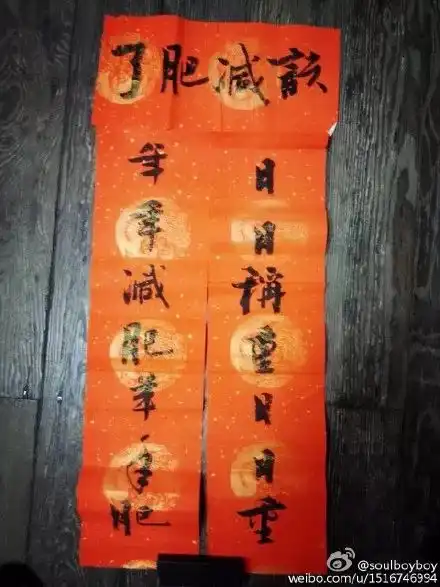 該減肥了
日日稱重日日重
年年減肥年年肥
@soulboyboy
weibo.com/u/1516746994